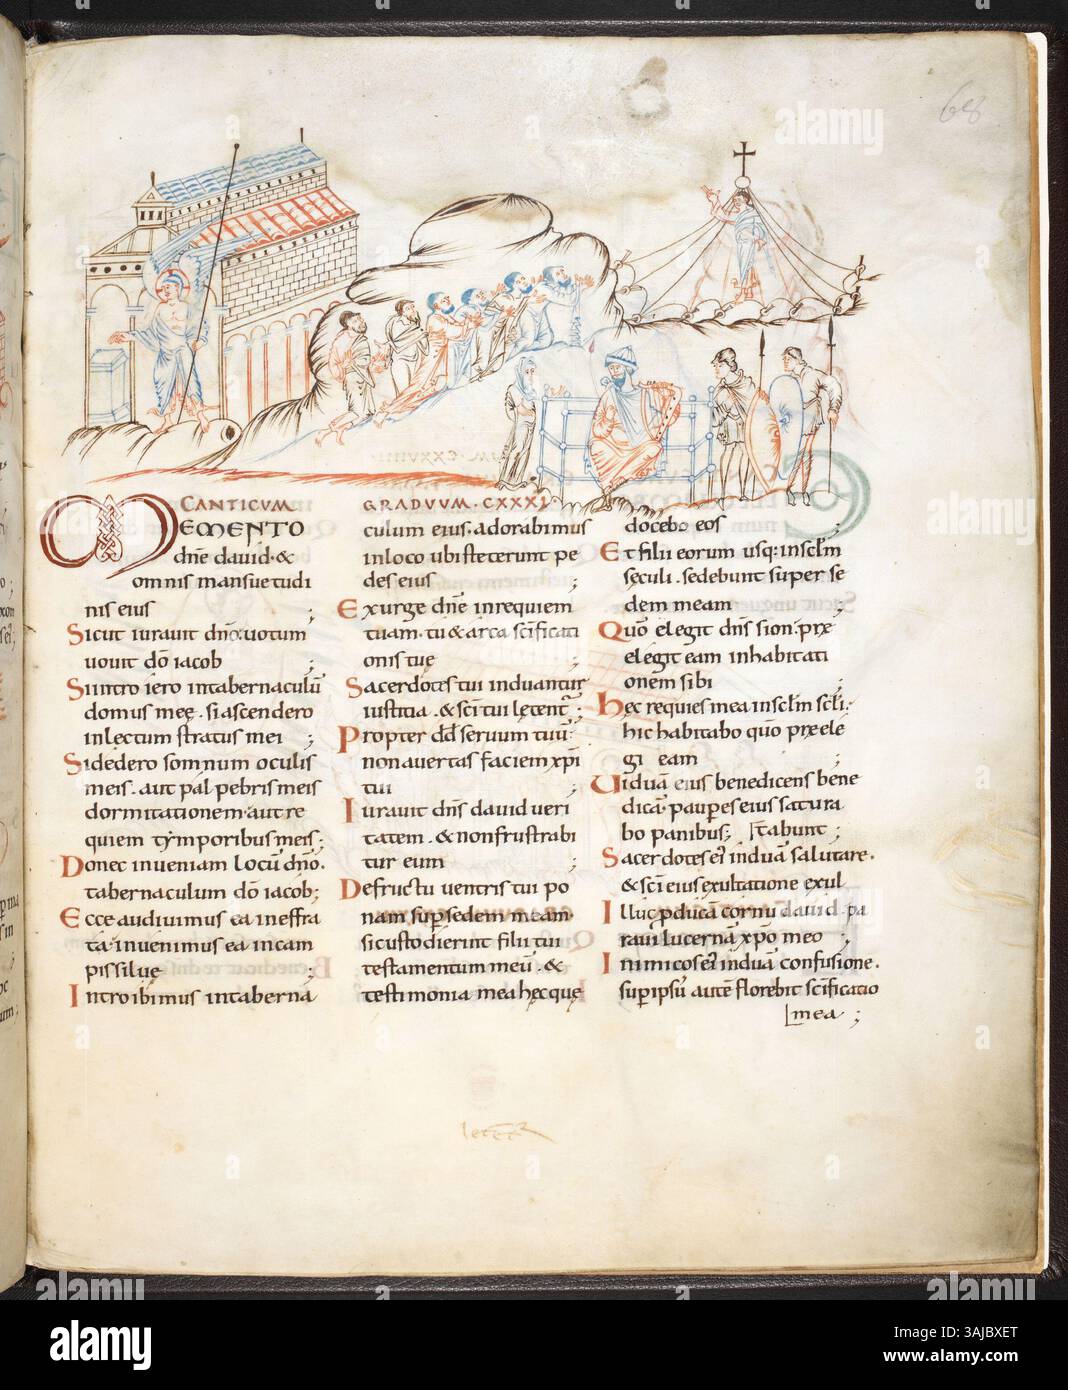 68
CANTICUM GRADUUM. CXXXI
MEMENTO
dn̄e david · &
omnis mansuetudi
nis eius ;
Sicut iuravit dn̄o: votum
vovit dō iacob ;
Si intro iero intabernaculū
domus meę . si ascendero
inlectum stratus mei ;
Si dedero somnum oculis
meis . aut palpebris meis
dormitationem . aut re
quiem tymporibus meis ;
Donec inveniam locū dn̄o .
tabernaculum dō iacob ;
Ecce audivimus ea ineffra
ta . invenimus ea incam
pis silvę ;
Introibimus intaberna
culum eius . adorabimus
inloco ubi steterunt pe
des eius ;
Exurge dn̄e inrequiem
tuam . tu & arca sc̄ificati
onis tuę ;
Sacerdotes tui induantur
iustitia . & sc̄i tui lętent̄ ;
Propter dd̄ servum tuū
non avertas faciem xp̄i
tui ;
Iuravit dn̄s david veri
tatem . & non frustrabi
tur eum ;
De fructu ventris tui po
nam sup̄ sedem meam .
si custodierint filii tui
testamentum meū . &
testimonia mea hęc quę
docebo eos ;
Et filii eorum usq; insclm̄
sęculi . sedebunt super se
dem meam ;
Quō elegit dn̄s sion . prę
elegit eam inhabitati
onem sibi ;
hęc requies mea insclm̄ scl̄i .
hic habitabo quō pręele
gi eam ;
Viduā eius benedicens bene
dicā . paup̄es eius satura
bo panibus ;
Sacerdotes ei' induā salutare .
& sc̄i eius exultatione exul
tabunt ;
Illuc p̄ducā cornu david . pa
ravi lucernā xp̄o meo ;
Inimicos ei' induā confusione .
sup̄ ipsū autē florebit sc̄ificatio
mea ;
alamy
Image ID: 3AJBXET
www.alamy.com